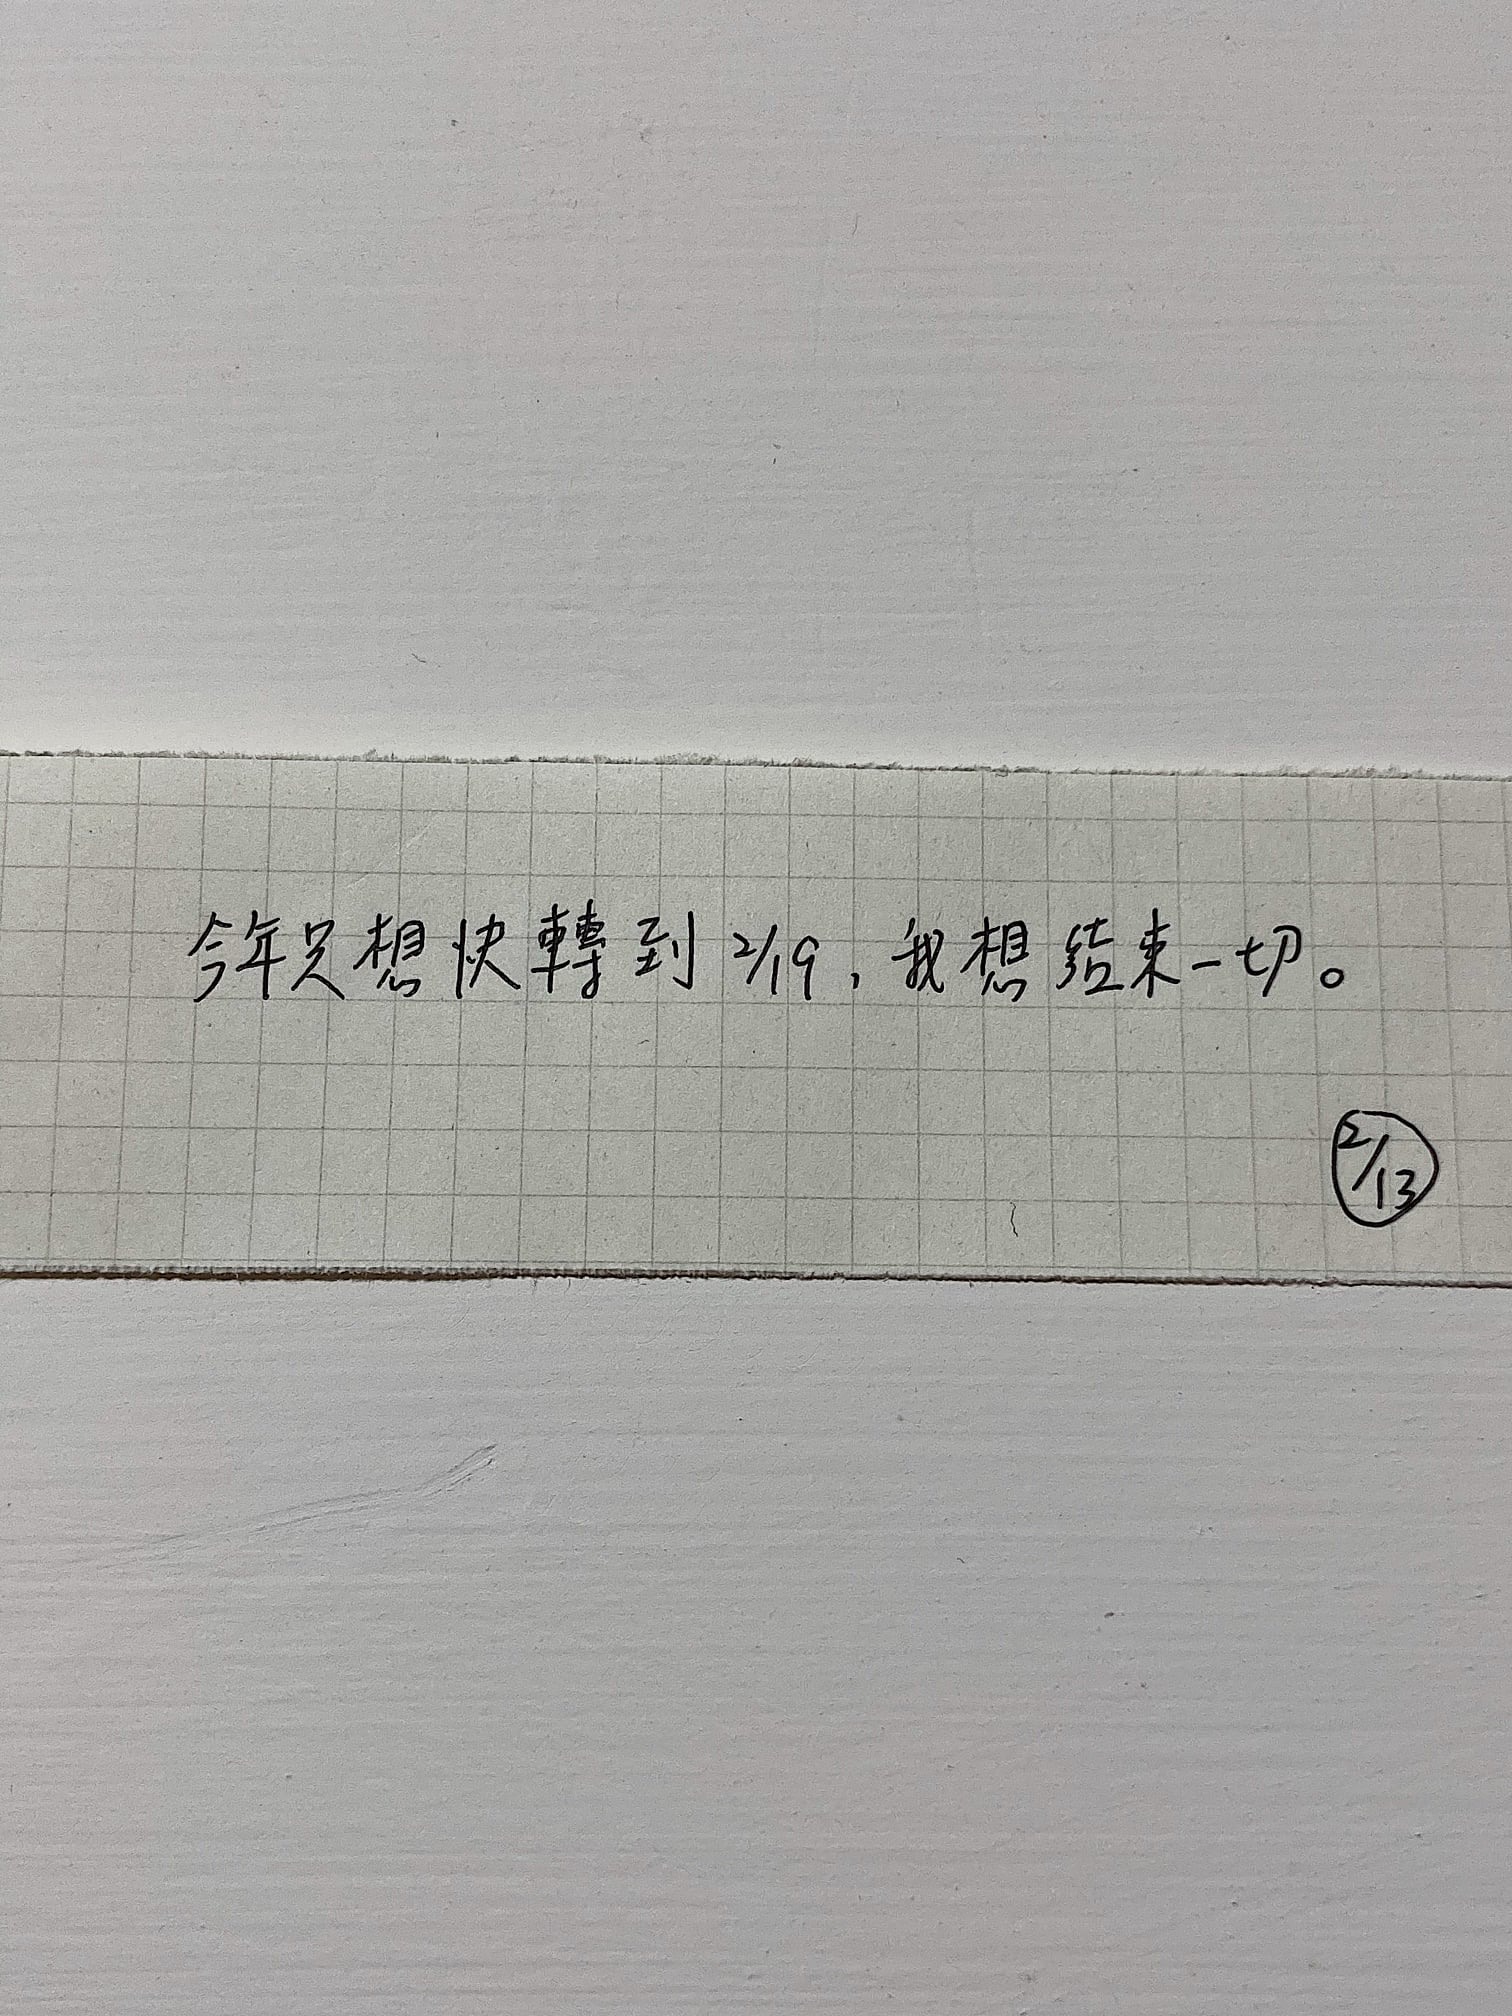 今年只想快轉到2/19，我想結束一切。
2/13